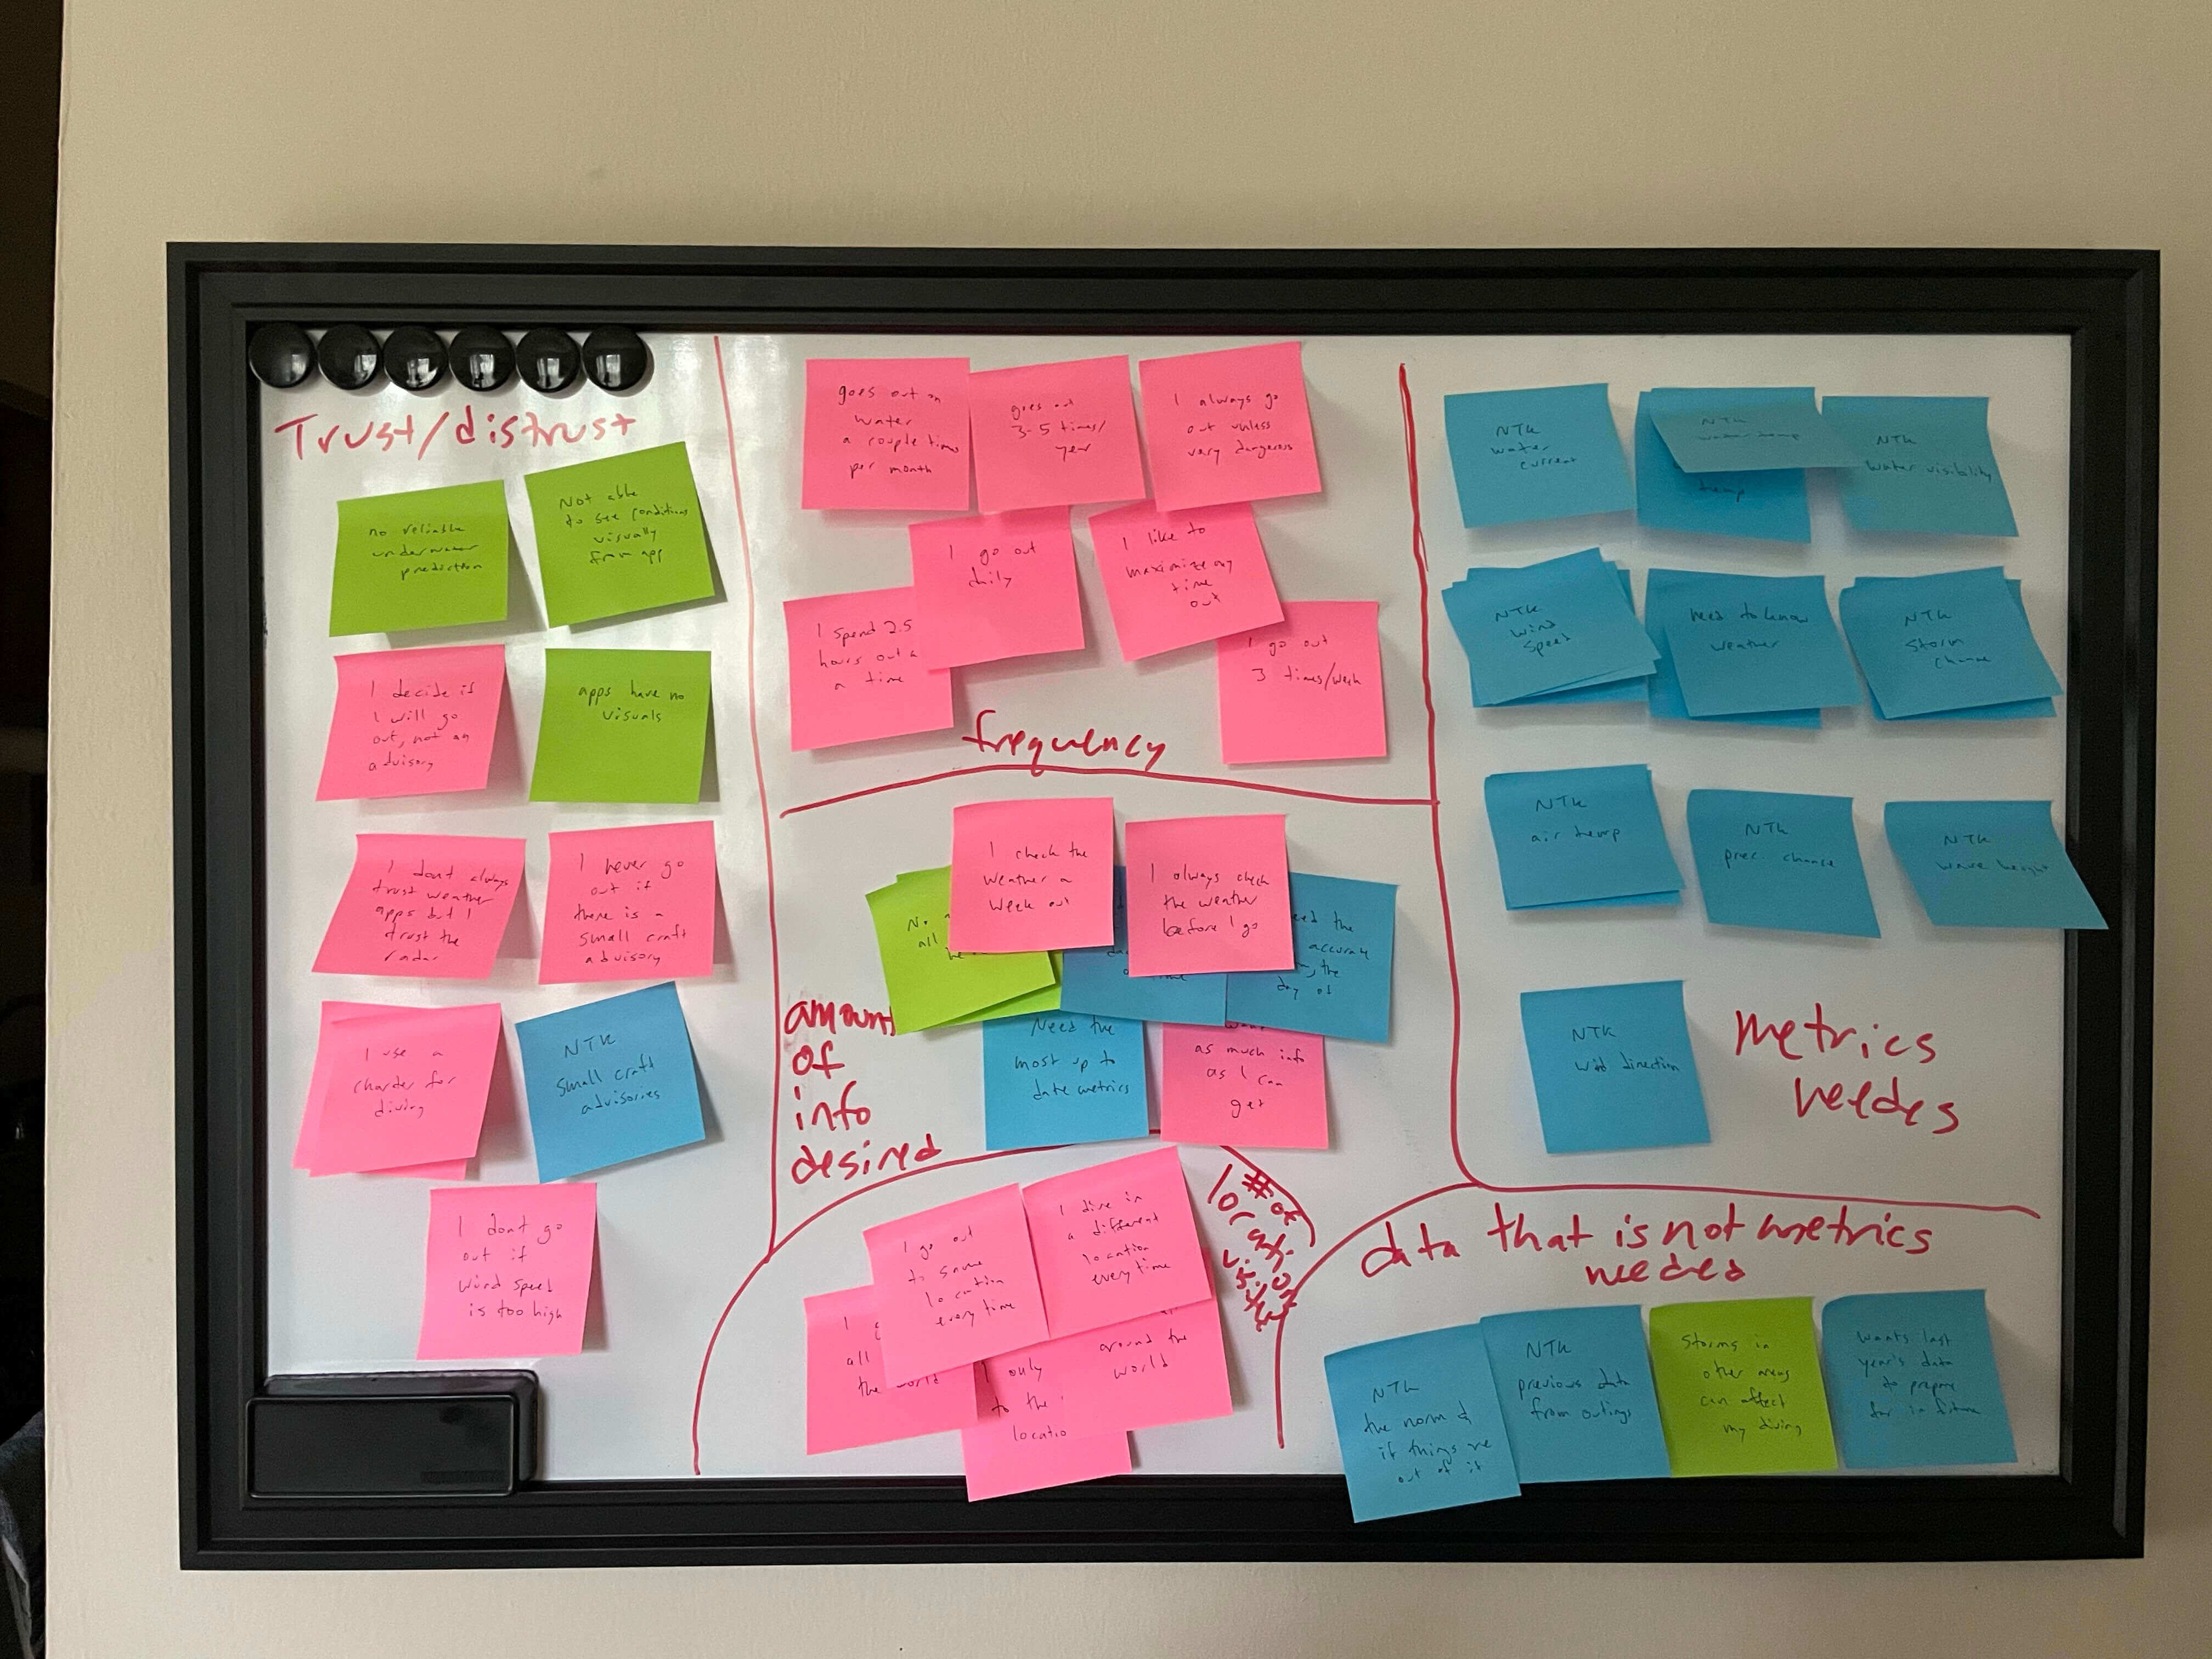 Trust/distrust
no reliable
underwater
prediction
Not able
to see conditions
visually
from app
I decide if
I will go
out, not an
advisory
apps have no
visuals
I dont always
trust weather
apps but I
trust the
radar
I never go
out if
there is a
small craft
advisory
I use a
charter for
diving
NTK
small craft
advisories
I dont go
out if
wind speed
is too high
goes out on
water
a couple times
per month
goes out
3-5 times/
year
I always go
out unless
very dangerous
I go out
daily
I like to
maximize my
time
out
I spend 2.5
hours out a
a time
I go out
3 times/week
frequency
I check the
weather a
week out
I always check
the weather
before I go
all
the
accurate
the
day of
Need the
most up to
date metrics
as much info
as I can
get
amount
of
info
desired
# of
locations
visited
I go out
to same
location
every time
I dive in
a different
location
every time
I
all
the world
I only
to the
locatio
around the
world
NTK
water
current
NTK
water temp
temp
NTK
water visibility
NTK
wind
speed
need to know
weather
NTK
storm
chance
NTK
air temp
NTK
prec chance
NTK
wave height
NTK
wind direction
metrics
needes
data that is not metrics
needed
NTK
the norm &
if things are
out of it
NTK
previous data
from outings
Storms in
other areas
can affect
my diving
wants last
year's data
to prepare
for in future